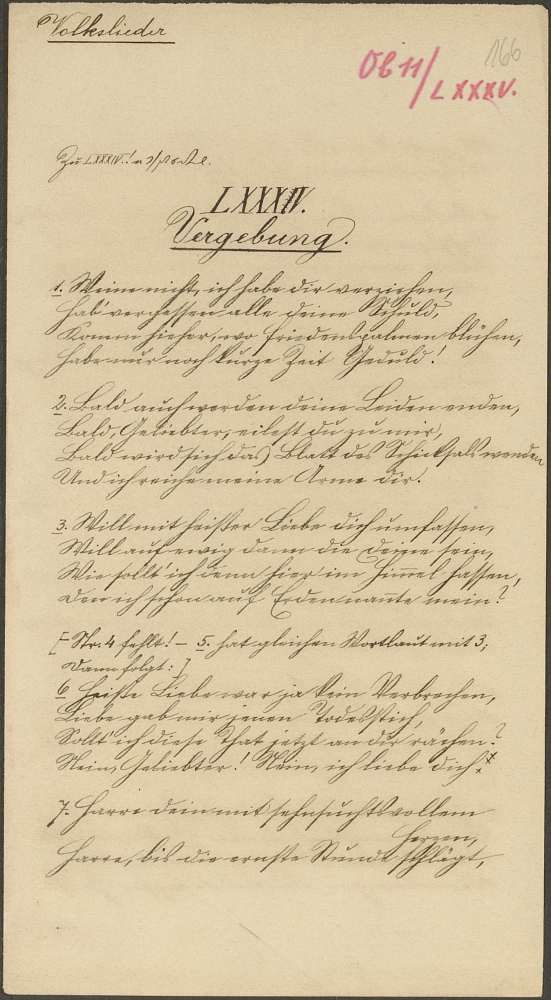 Volkslieder
166
OB 11/
LXXXV.
Zu LXXXIV.!
LXXXIV.
Vergebung.
1. Weine nicht, ich habe dir verziehen,
Hab' vergessen alle deine Schuld,
Komm hieher, wo Friedenspalmen blühen,
Habe nur noch kurze Zeit Geduld!
2. Bald auch werden deine Leiden enden,
Bald, Geliebter, eilest du zu mir,
Bald wird sich das Blatt des Schicksals wenden
Und ich reiche meine Arme dir.
3. Will mit heißer Liebe dich umfassen,
Will auf ewig dann die Deine sein,
Wie sollt' ich denn hier im Himmel hassen,
Den ich schon auf Erden nannte mein?
[– Str. 4 fehlt! – 5. hat gleichen Wortlaut mit 3;
Dann folgt: ]
6. Heiße Liebe war ja kein Verbrechen,
Liebe gab mir jenen Todesstich,
Sollt' ich diese That jetzt an dir rächen?
Nein, Geliebter! Nein, ich liebe dich!
7. Harre dein mit sehnsuchtsvollem
Herzen,
Harre, bis die ernste Stunde schlägt,